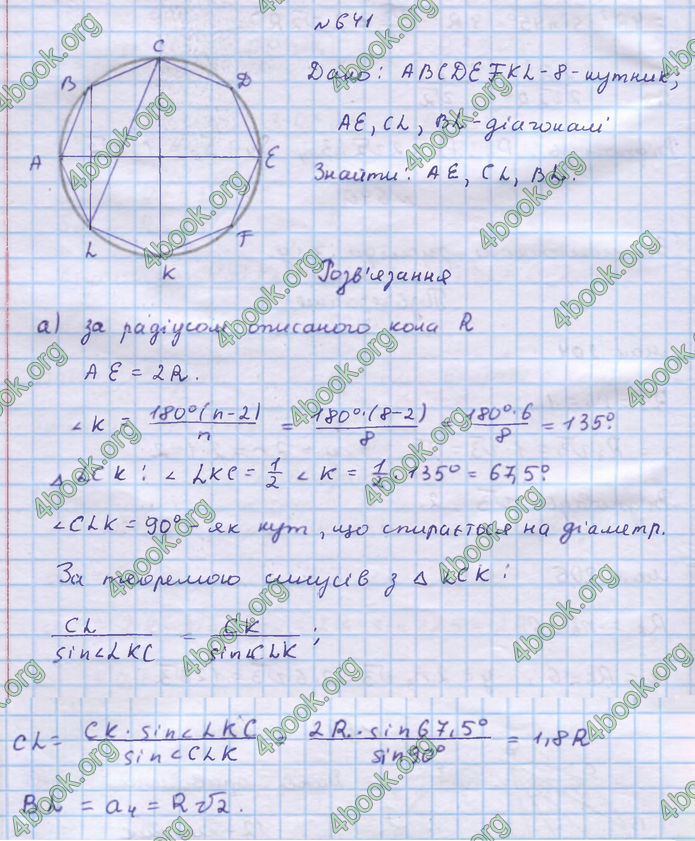 № 641
Дано: ABCDEFKL - 8 - кутник,
AE, CL, BL - діагоналі
Знайти: AE, CL, BL.
C
B
D
A
E
L
F
K
Розв'язання
а) за радіусом описаного кола R
AE = 2R.
∠K = 180°(n-2)/n = 180°·(8-2)/8 = 180°·6/8 = 135°.
△ LCK: ∠ LKC = 1/2 ∠ K = 1/2 · 135° = 67,5°.
∠CLK = 90° - як кут, що спирається на діаметр.
За теоремою синусів з △ LCK:
CL/sin∠LKC = CK/sin∠CLK ;
CL = CK · sin∠LKC/sin∠CLK = 2R · sin67,5°/sin90° = 1,8R
BL = a₄ = R√2.
4book.org